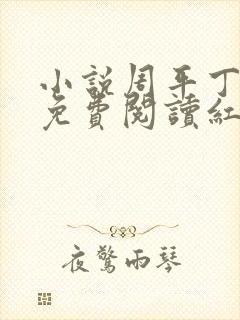 小説周平丁
免費閱讀紅
夜驚雨琴